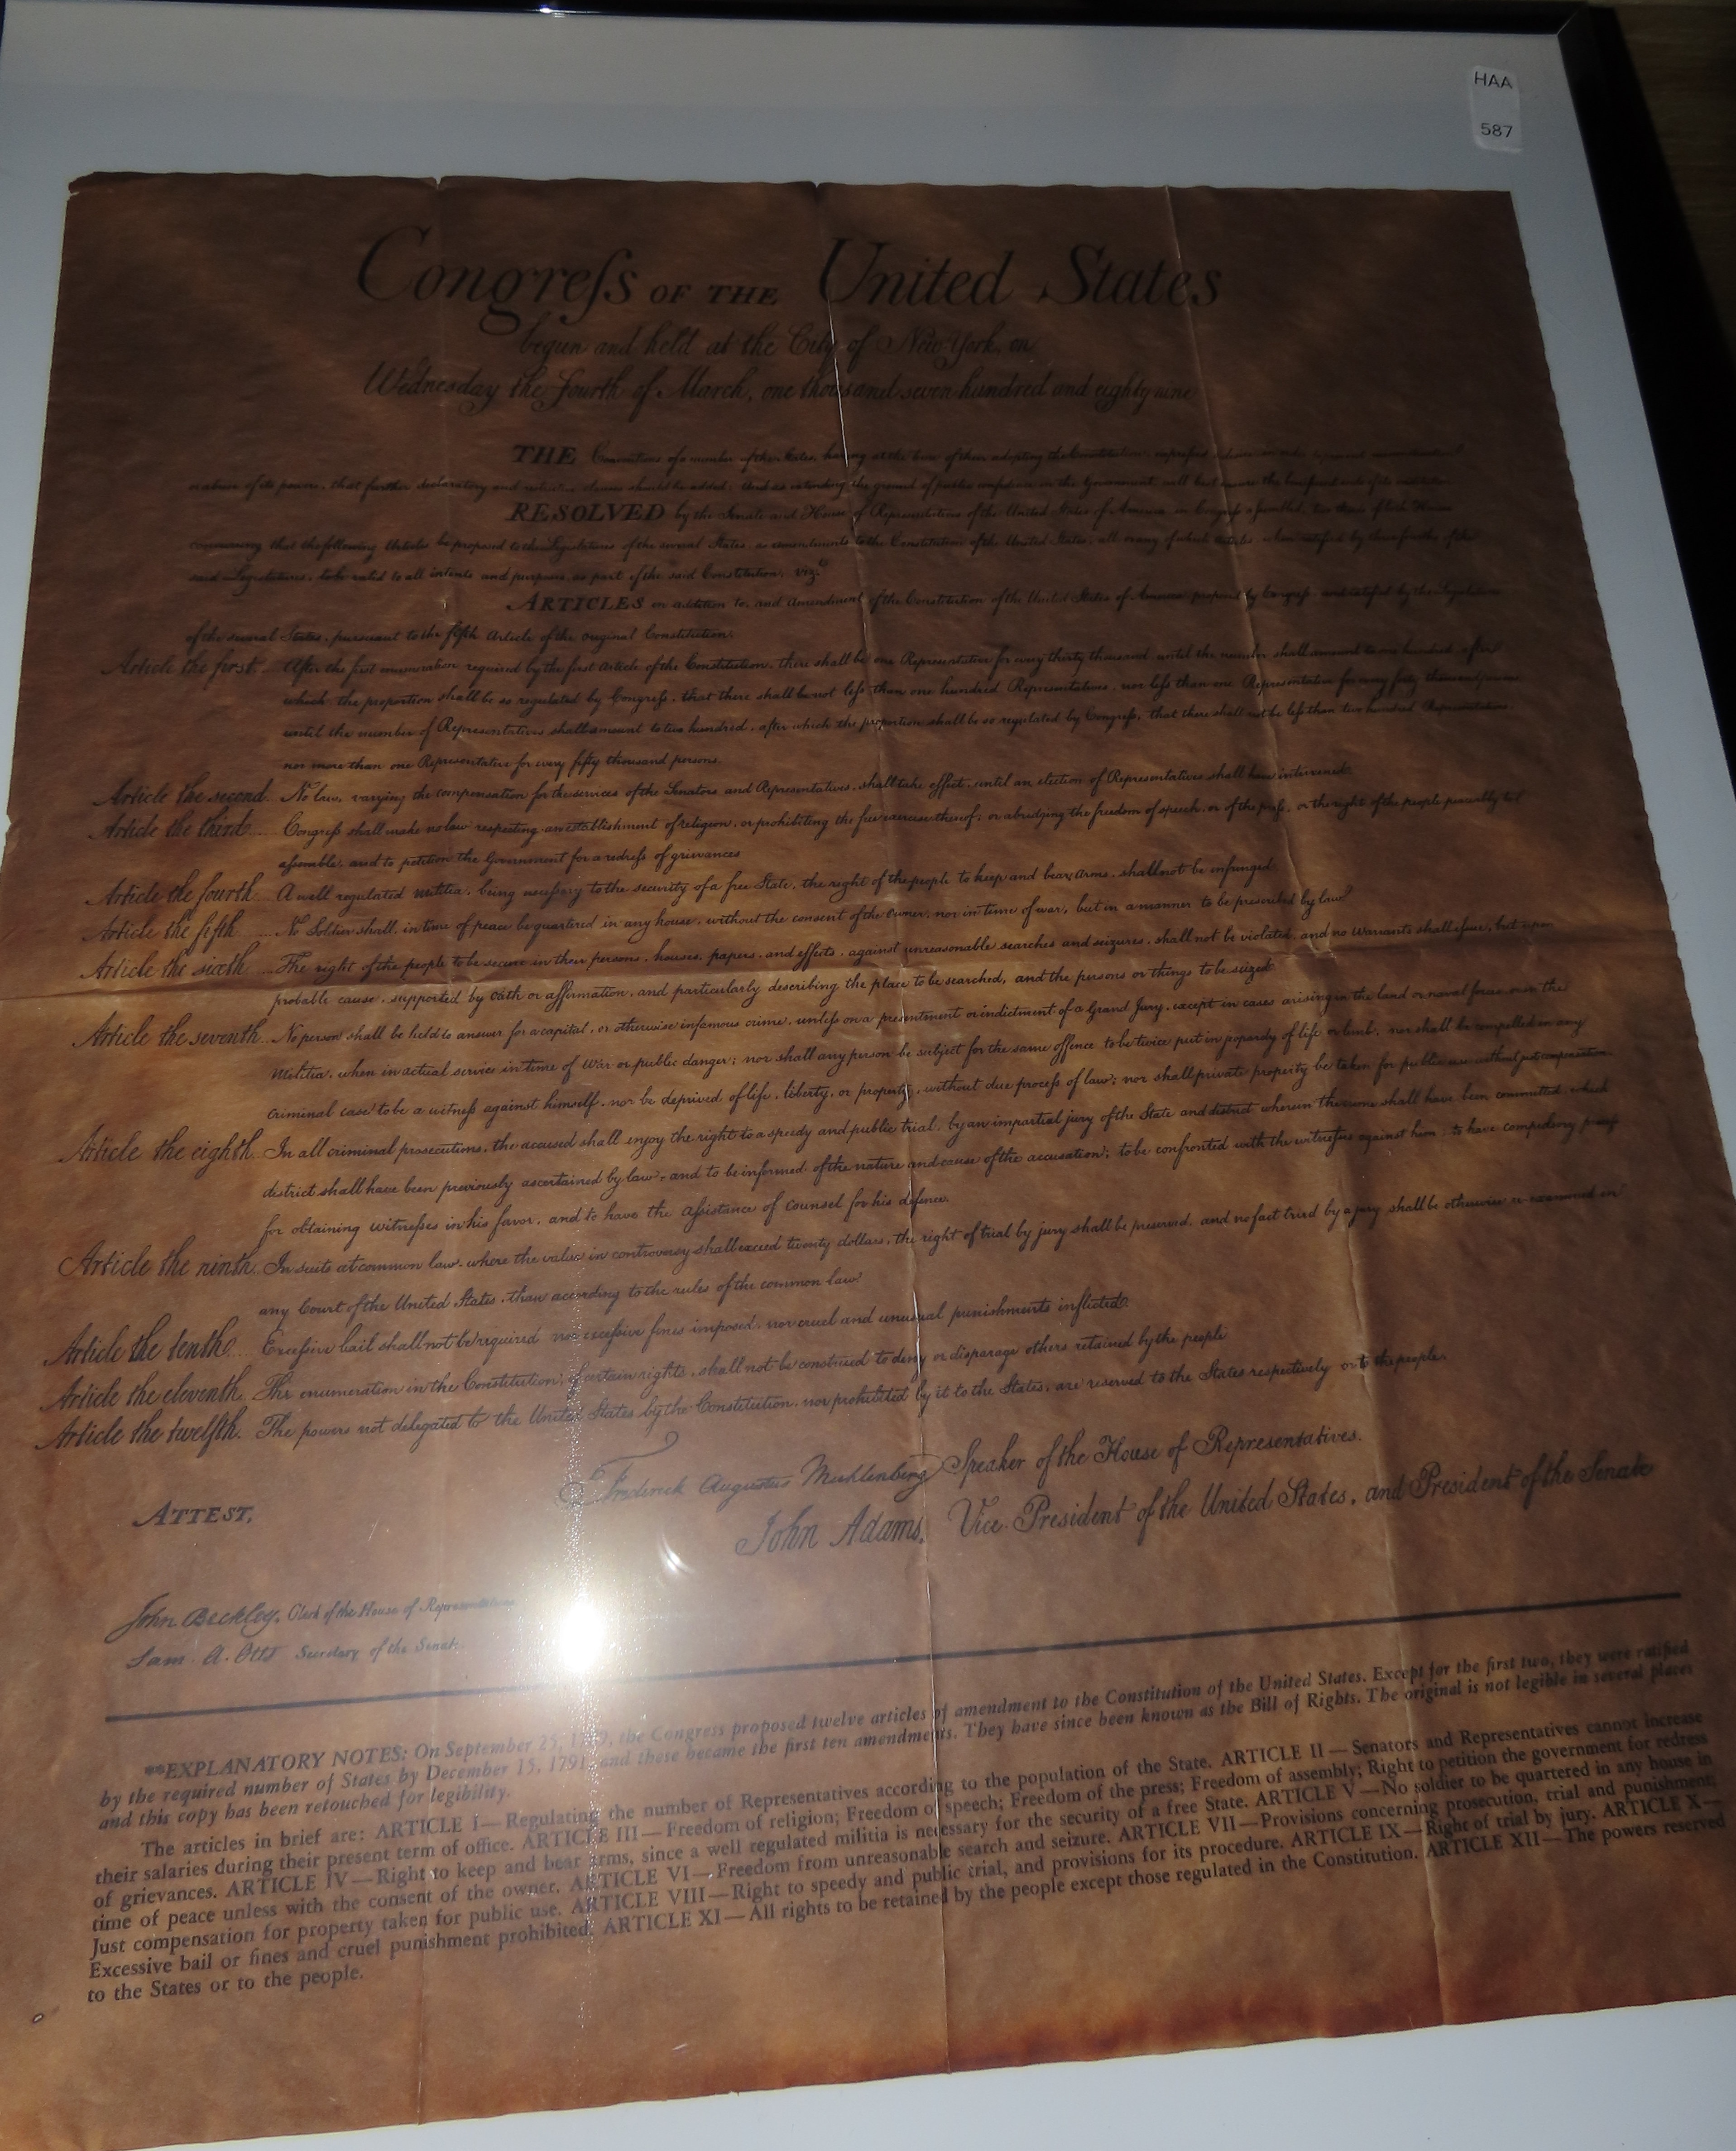 HAA
587
Congreſs OF THE United States
begun and held at the City of New York, on
Wednesday the fourth of March, one thousand seven hundred and eighty nine
THE Conventions of a number of the States, having at the time of their adopting the Constitution, expreſsed a desire in order to prevent misconstruction
or abuse of its powers, that further declaratory and restrictive clauses should be added: And as extending the ground of public confidence in the Government, will best ensure the beneficent ends of its institution
RESOLVED by the Senate and House of Representatives of the United States of America in Congreſs aſsembled, two thirds of both Houses
concurring that the following Articles be proposed to the Legislatures of the several States, as amendments to the Constitution of the United States, all or any of which articles, when ratified by three fourths of the
said Legislatures, to be valid to all intents and purposes, as part of the said Constitution; viz.t
ARTICLES in addition to, and Amendment of the Constitution of the United States of America, proposed by Congreſs, and ratified by the Legislatures
of the several States, pursuant to the fifth Article of the original Constitution.
Article the first. After the first enumeration required by the first Article of the Constitution, there shall be one Representative for every thirty thousand, until the number shall amount to one hundred, after
which, the proportion shall be so regulated by Congreſs, that there shall be not leſs than one hundred Representatives, nor leſs than one Representative for every forty thousand persons
until the number of Representatives shall amount to two hundred, after which the proportion shall be so regulated by Congreſs, that there shall not be leſs than two hundred Representatives,
nor more than one Representative for every fifty thousand persons.
Article the second. No law, varying the compensation for the services of the Senators and Representatives, shall take effect, until an election of Representatives shall have intervened.
Article the third... Congreſs shall make no law respecting an establishment of religion, or prohibiting the free exercise thereof; or abridging the freedom of speech, or of the preſs, or the right of the people peaceably to
aſsemble, and to petition the Government for a redreſs of grievances
Article the fourth. A well regulated militia, being neceſsary to the security of a free State, the right of the people to keep and bear arms, shall not be infringed.
Article the fifth ... No Soldier shall, in time of peace be quartered in any house, without the consent of the owner, nor in time of war, but in a manner to be prescribed by law.
Article the sixth ... The right of the people to be secure in their persons, houses, papers, and effects, against unreasonable searches and seizures, shall not be violated, and no warrants shall iſsue, but upon
probable cause, supported by oath or affirmation, and particularly describing the place to be searched, and the persons or things to be seized
Article the seventh. No person shall be held to answer for a capital, or otherwise infamous crime, unleſs on a presentment or indictment of a Grand Jury, except in cases arising in the land or naval forces, or in the
Militia, when in actual service in time of War or public danger; nor shall any person be subject for the same offence to be twice put in jeopardy of life or limb, nor shall be compelled in any
criminal case to be a witneſs against himself, nor be deprived of life, liberty, or property, without due proceſs of law; nor shall private property be taken for public use without just compensation
Article the eighth. In all criminal prosecutions, the accused shall enjoy the right to a speedy and public trial, by an impartial jury of the State and district wherein the crime shall have been committed, which
district shall have been previously ascertained by law, and to be informed of the nature and cause of the accusation; to be confronted with the witneſses against him; to have compulsory proceſs
for obtaining witneſses in his favor, and to have the aſsistance of counsel for his defence.
Article the ninth. In suits at common law, where the value in controversy shall exceed twenty dollars, the right of trial by jury shall be preserved, and no fact tried by a jury shall be otherwise re-examined in
any Court of the United States, than according to the rules of the common law.
Article the tenth... Exceſsive bail shall not be required nor exceſsive fines imposed, nor cruel and unusual punishments inflicted.
Article the eleventh. The enumeration in the Constitution, of certain rights, shall not be construed to deny or disparage others retained by the people
Article the twelfth. The powers not delegated to the United States by the Constitution, nor prohibited by it to the States, are reserved to the States respectively or to the people.
Frederick Augustus Muhlenberg Speaker of the House of Representatives.
ATTEST, John Adams, Vice President of the United States, and President of the Senate
John Beckley, Clerk of the House of Representatives
Sam. A. Otis Secretary of the Senate
**EXPLANATORY NOTES: On September 25, 1789, the Congress proposed twelve articles of amendment to the Constitution of the United States. Except for the first two, they were ratified
by the required number of States by December 15, 1791, and these became the first ten amendments. They have since been known as the Bill of Rights. The original is not legible in several places
and this copy has been retouched for legibility.
The articles in brief are: ARTICLE I—Regulating the number of Representatives according to the population of the State. ARTICLE II—Senators and Representatives cannot increase
their salaries during their present term of office. ARTICLE III—Freedom of religion; Freedom of speech; Freedom of the press; Freedom of assembly; Right to petition the government for redress
of grievances. ARTICLE IV—Right to keep and bear arms, since a well regulated militia is necessary for the security of a free State. ARTICLE V—No soldier to be quartered in any house in
time of peace unless with the consent of the owner. ARTICLE VI—Freedom from unreasonable search and seizure. ARTICLE VII—Provisions concerning prosecution, trial and punishment;
Just compensation for property taken for public use. ARTICLE VIII—Right to speedy and public trial, and provisions for its procedure. ARTICLE IX—Right of trial by jury. ARTICLE X—
Excessive bail or fines and cruel punishment prohibited. ARTICLE XI—All rights to be retained by the people except those regulated in the Constitution. ARTICLE XII—The powers reserved
to the States or to the people.